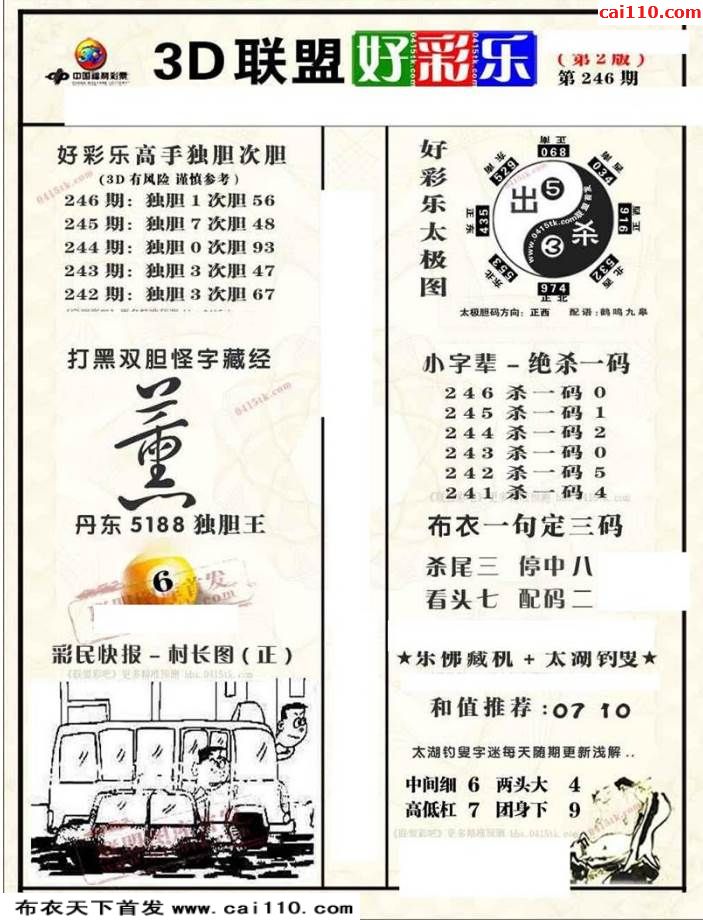 cai110.com
中国福利彩票
CHINA WELFARE LOTTERY
3D联盟 好彩乐
(第2版)
第246期
好彩乐高手独胆次胆
(3D有风险 谨慎参考)
246期: 独胆1次胆56
245期: 独胆7次胆48
244期: 独胆0次胆93
243期: 独胆3次胆47
242期: 独胆3次胆67
0415tk.com
打黑双胆怪字藏经
薰
0415tk.com
丹东5188独胆王
6
彩民快报-村长图(正)
《联盟彩吧》更多精准预测 bbs.0415tk.com
好彩乐太极图
正南
068
西南
034
正西
916
西北
532
974
正北
东北
553
正东
435
东南
529
出 5
3 杀
www.0415tk.com
太极胆码方向: 正西 配语: 鹤鸣九皋
小字辈-绝杀一码
246 杀一码 0
245 杀一码 1
244 杀一码 2
243 杀一码 0
242 杀一码 5
241 杀一码 4
《联盟彩吧》更多精准预测 bbs.0415tk.com
布衣一句定三码
杀尾三 停中八
看头七 配码二
★乐佛藏机+太湖钓叟★
和值推荐:07 10
太湖钓叟字迷每天随期更新浅解..
中间细 6 两头大 4
高低杠 7 团身下 9
《联盟彩吧》更多精准预测 bbs.0415tk.com
0415tk.com
布衣天下首发 www.cai110.com